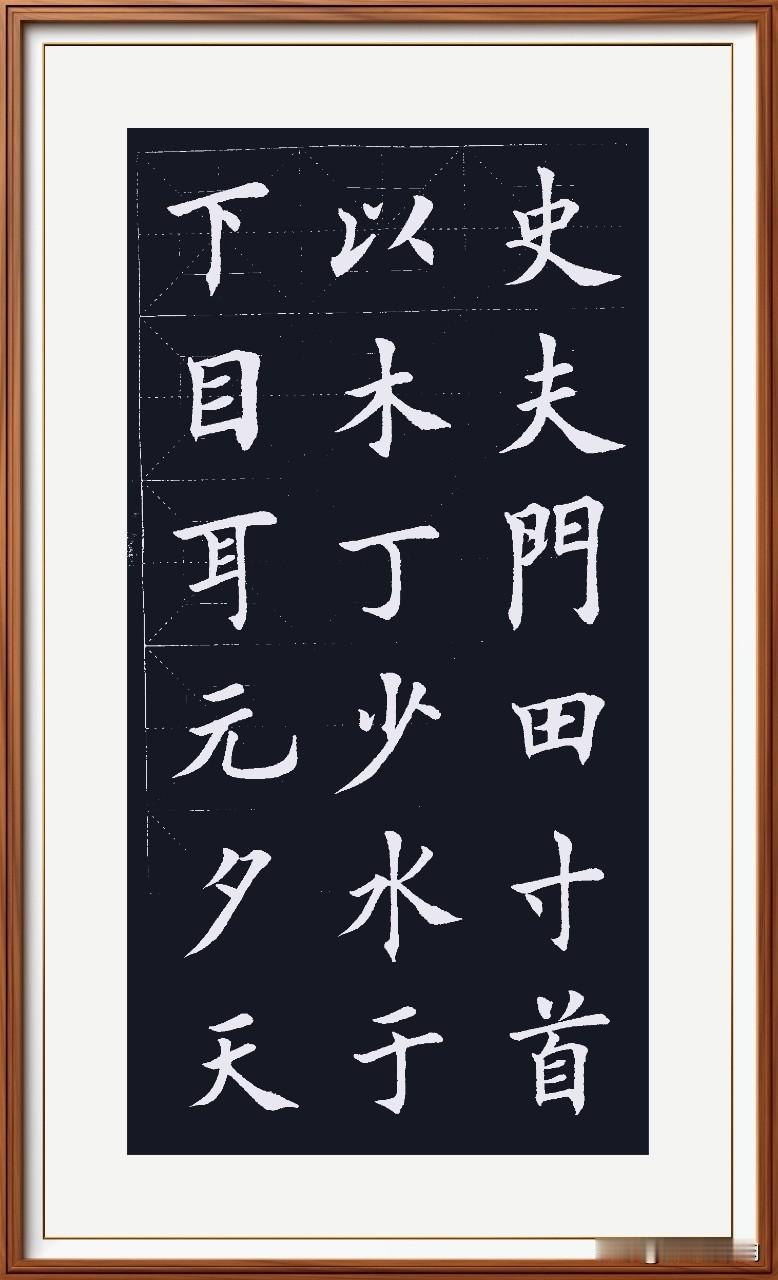 史夫門田寸首
以木丁少水于
下目耳元夕天